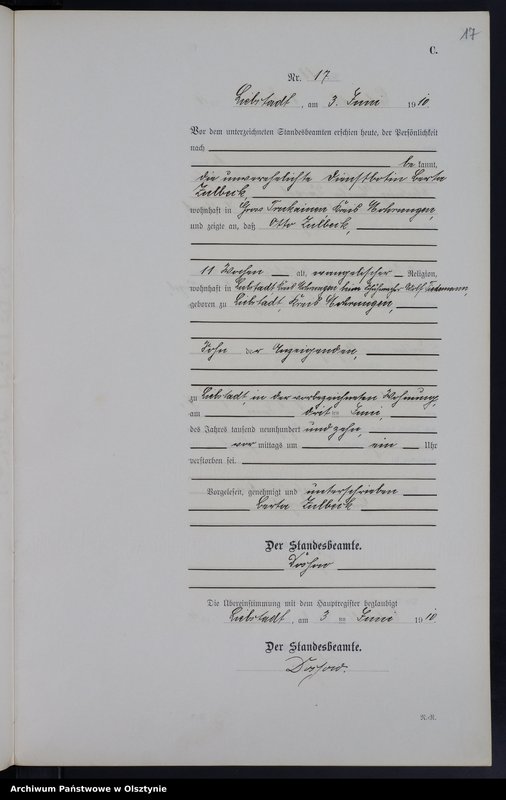 17
C.
Nr. 17
Liebstadt, am 3. Juni 1910
Vor dem unterzeichneten Standesbeamten erschien heute, der Persönlichkeit
nach
be kannt,
die unverehelichte Dienstbotin Berta
Zulbeck,
wohnhaft in Gross Kreis Mohrungen,
und zeigte an, daß Otto Zulbeck,
11 Wochen alt, evangelischer Religion,
wohnhaft in Liebstadt Kreis Mohrungen beim
geboren zu Liebstadt, Kreis Mohrungen,
Sohn der Anzeigenden,
zu Liebstadt, in der vorbezeichneten Wohnung,
am dritten Juni,
des Jahres tausend neunhundert und zehn,
vor mittags um ein Uhr
verstorben sei.
Vorgelesen, genehmigt und unterschrieben
Berta Zulbeck
Der Standesbeamte.
Die Übereinstimmung mit dem Hauptregister beglaubigt
Liebstadt, am 3 ten Juni 1910
Der Standesbeamte.
N.-R.
Archiwum Państwowe w Olsztynie